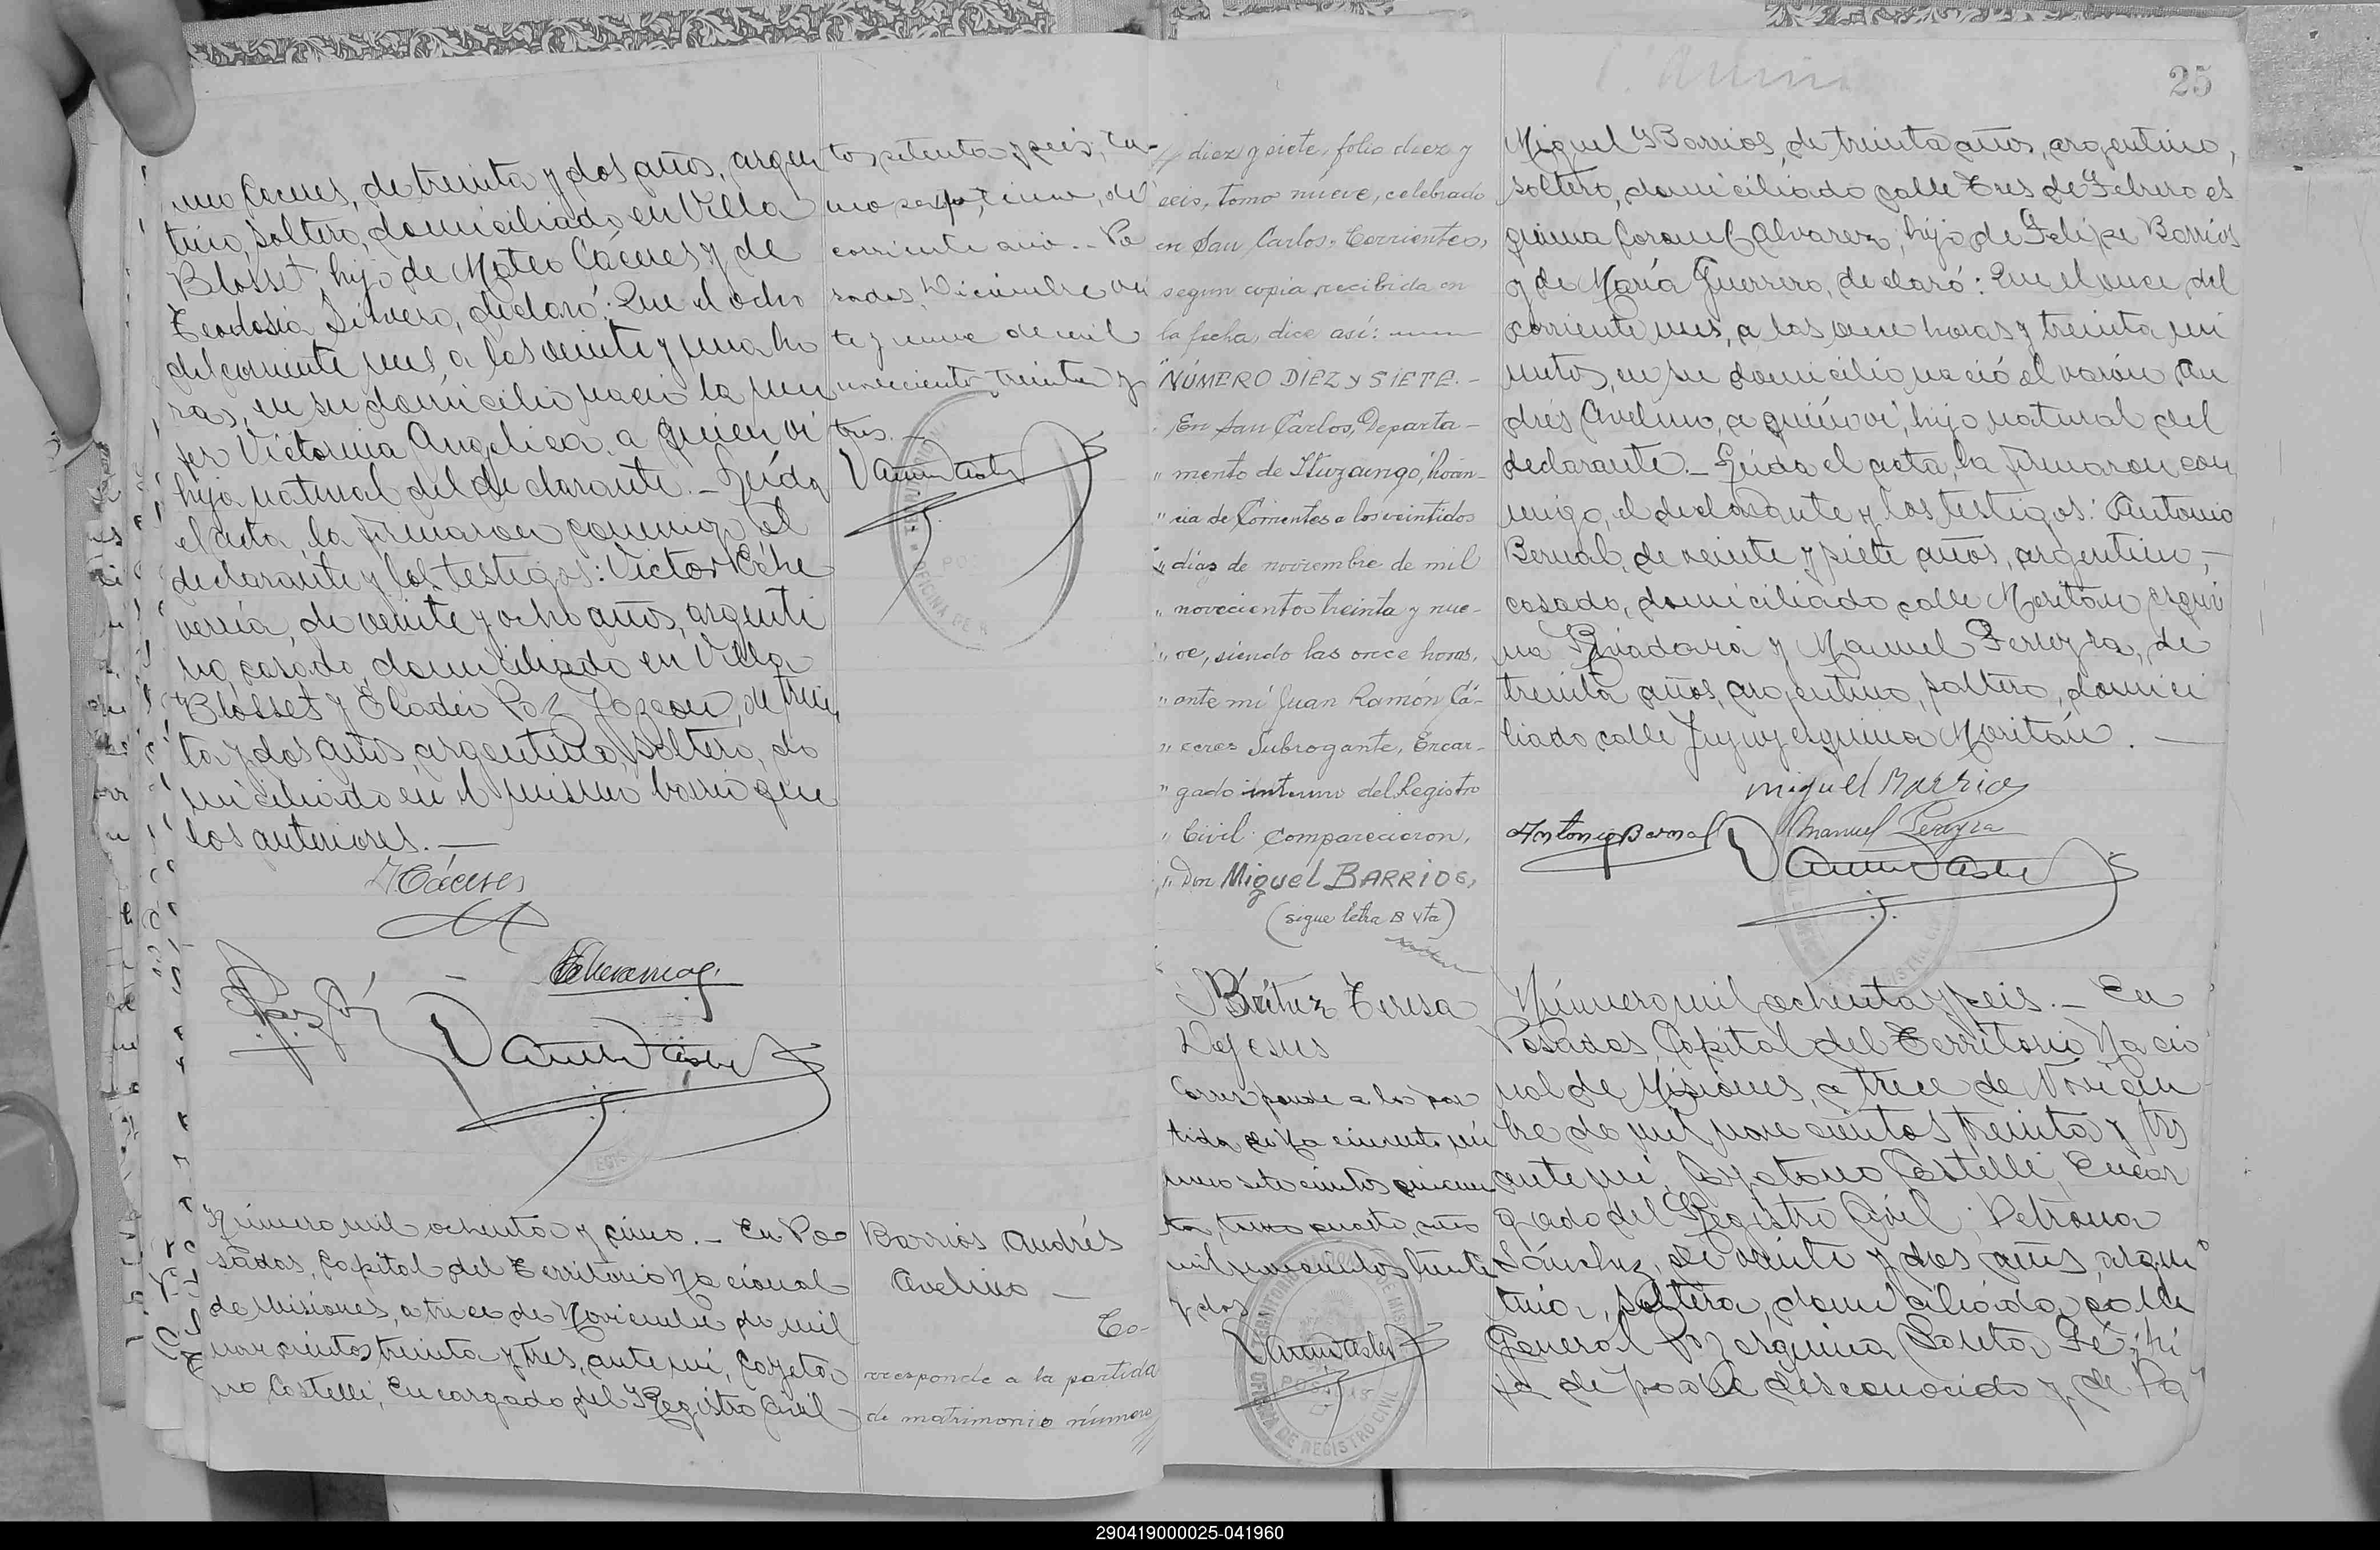 mo Cáceres, de treinta y dos años, argen
tino, soltero, domiciliado en Villa
Blosset, hijo de Mateo Cáceres y de
Teodosia Silvero, declaró: Que el ocho
del corriente mes, a las veinte y una ho
ras, en su domicilio nació la mu
jer Victorina Angelica, a quien vi
hija natural del declarante. - Leída
el acta, la firmaron conmigo el
declarante y los testigos: Victor Eche
verría, de veinte y ocho años, argenti
no, casado, domiciliado en Villa
Blosset y Eladio Paz, de trein
ta y dos años, argentino, soltero, do
miciliado en el mismo barrio que
los anteriores. —
Cáceres
Echeverria
Número mil ochenta y cinco. - En Po
sadas, Capital del Territorio Nacional
de Misiones, a trece de Noviembre de mil
novecientos treinta y tres, ante mí, Cayeta
no Castelli, Encargado del Registro Civil
tos setenta y seis, to-
mo septimo, del
corriente año. - Po
sadas, Diciembre vein
te y nueve de mil
novecientos treinta y
tres. -
Barrios Andrés
Avelino —
Co-
rresponde a la partida
de matrimonio número
25
diez y siete, folio diez y
seis, tomo nueve, celebrado
en San Carlos, Corrientes,
segun copia recibida en
la fecha, dice así: —
"NÚMERO DIEZ Y SIETE. -
En San Carlos, Departa-
" mento de Ituzaingo, Provin-
" cia de Corrientes a los veintidos
" días de noviembre de mil
" novecientos treinta y nue-
" ve, siendo las once horas,
" ante mí Juan Ramón Cá-
" ceres Subrogante, Encar-
" gado interino del Registro
" Civil comparecieron,
" Don Miguel BARRIOS,
(sigue letra B vta)
Benítez Teresa
Dejesus
Corresponde a la par
tida de Na cimiento nú
mero setecientos cincuen
ta, tomo cuarto, año
mil novecientos treinta
y dos
TERRITORIO DE MISIONES
POSADAS
OFICINA DE REGISTRO CIVIL
Miguel Barrios, de treinta años, argentino,
soltero, domiciliado calle Tres de Febrero es
quina Coronel Alvarez, hijo de Felipe Barrios
y de María Guerrero, declaró: Que el once del
corriente mes, a las once horas y treinta mi
nutos, en su domicilio nació el varón An
drés Avelino, a quién vi, hijo natural del
declarante. - Leída el acta, la firmaron con
migo, el declarante y los testigos: Antonio
Bernal, de veinte y siete años, argentino, -
casado, domiciliado calle Moritán esqui
na Rivadavia y Manuel Ferreyra, de
treinta años, argentino, soltero, domici
liado calle Jujuy esquina Moritán. —
Miguel Barrios
Antonio Bernal
Manuel Pereyra
Número mil ochenta y seis. - En
Posadas, Capital del Territorio Nacio
nal de Misiones, a trece de Noviem
bre de mil novecientos treinta y tres
ante mí, Cayetano Castelli, Encar
gado del Registro Civil, Petrona
Sánchez, de veinte y dos años, argen
tina, soltera, domiciliada calle
General Paz esquina Santa Fé, hi
ja de padre desconocido y de Pa
290419000025-041960